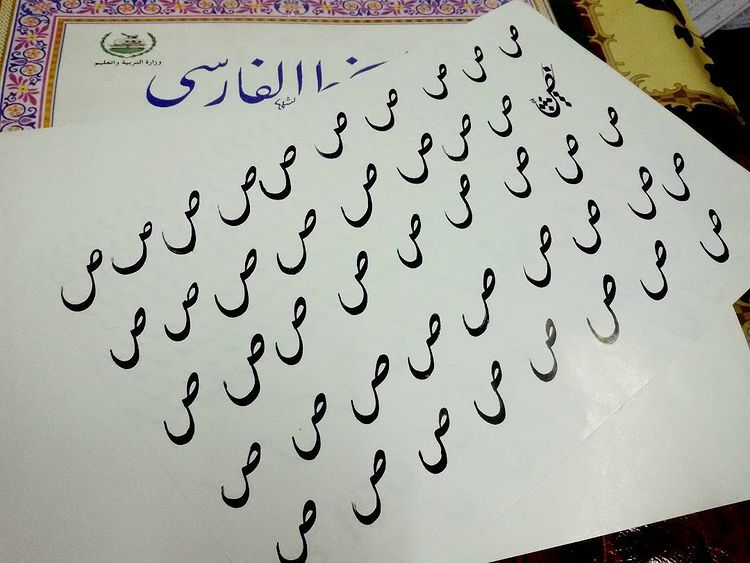 وزارة التربية والتعليم
الفارسي
ص ص ص ص ص ص ص ص ص ص
ص ص ص ص ص ص ص ص
ص ص ص ص ص ص ص ص ص
ص ص ص ص ص ص ص ص ص
ص ص ص ص ص ص ص ص